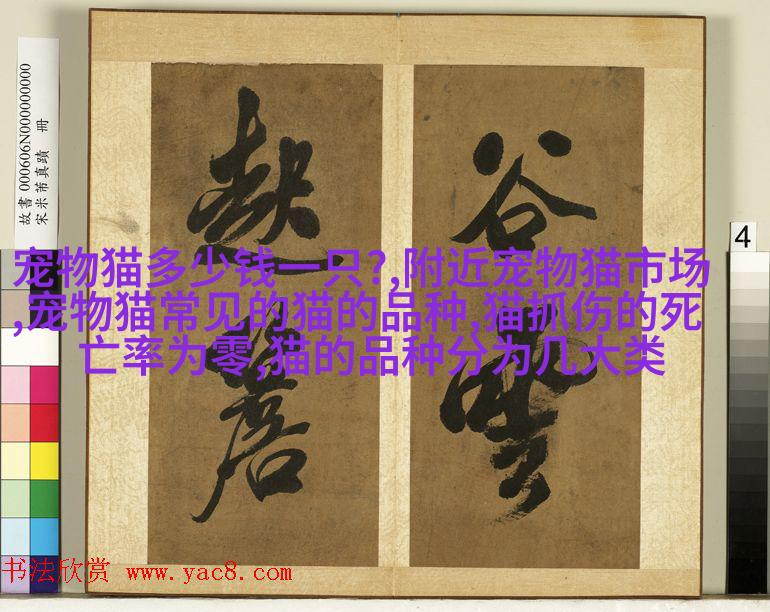 故書 000606N000000000 冊
宋米芾真蹟
4
宠物猫多少钱一只?,附近宠物猫市场
,宠物猫常见的猫的品种,猫抓伤的死
亡率为零,猫的品种分为几大类
谷
书法欣赏 www.yac8.com